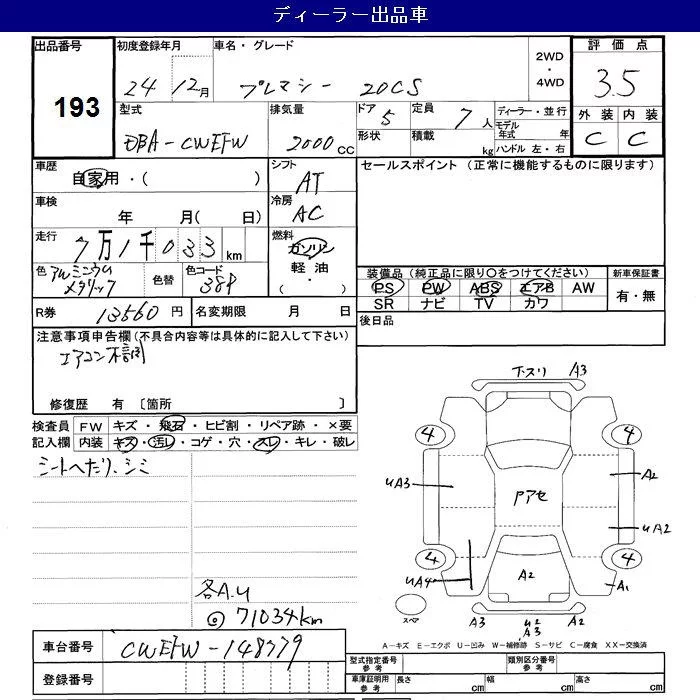 ディーラー出品車
出品番号
193
初度登録年月
24 12月
車名・グレード
プレマシー 20CS
2WD
4WD
評価点
3.5
外装 内装
C C
型式
DBA-CWEFW
排気量
2000cc
ドア
5
形状
定員
7人
積載
kg
ディーラー・並行
モデル
年式 年
ハンドル 左・右
車歴
自家用・( )
シフト
AT
セールスポイント (正常に機能するものに限ります)
車検
年 月( 日)
冷房
AC
走行
7万1千033km
燃料
ガソリン
軽油
( ・ )
色
アルミニウム
メタリック
色替
色コード
38P
装備品(純正品に限り○をつけてください)
PS PW ABS エアB AW
SR ナビ TV カワ
新車保証書
有・無
R券
13560円
名変期限 月 日
後日品
注意事項申告欄(不具合内容等は具体的に記入して下さい)
エアコン不調
修復歴 有 〔箇所 〕
検査員
記入欄
FW キズ・飛石・ヒビ割・リペア跡・×要
内装 キズ・汚レ・コゲ・穴・スレ・キレ・破レ
シートへたり、シミ
各A.U
◎71034km
下スリ A3
4 4
UA3 A2
Pアセ
UA2
4 4
UA4 A2 A1
スペア
A3 U2 A2
A3
A-キズ E-エクボ U-凹み W-補修跡 S-サビ C-腐食 XX-交換済
車台番号
CWEFW-148779
登録番号
型式指定番号
参考
類別区分番号
参考
車庫証明用
参考
長さ cm 幅 cm 高さ cm